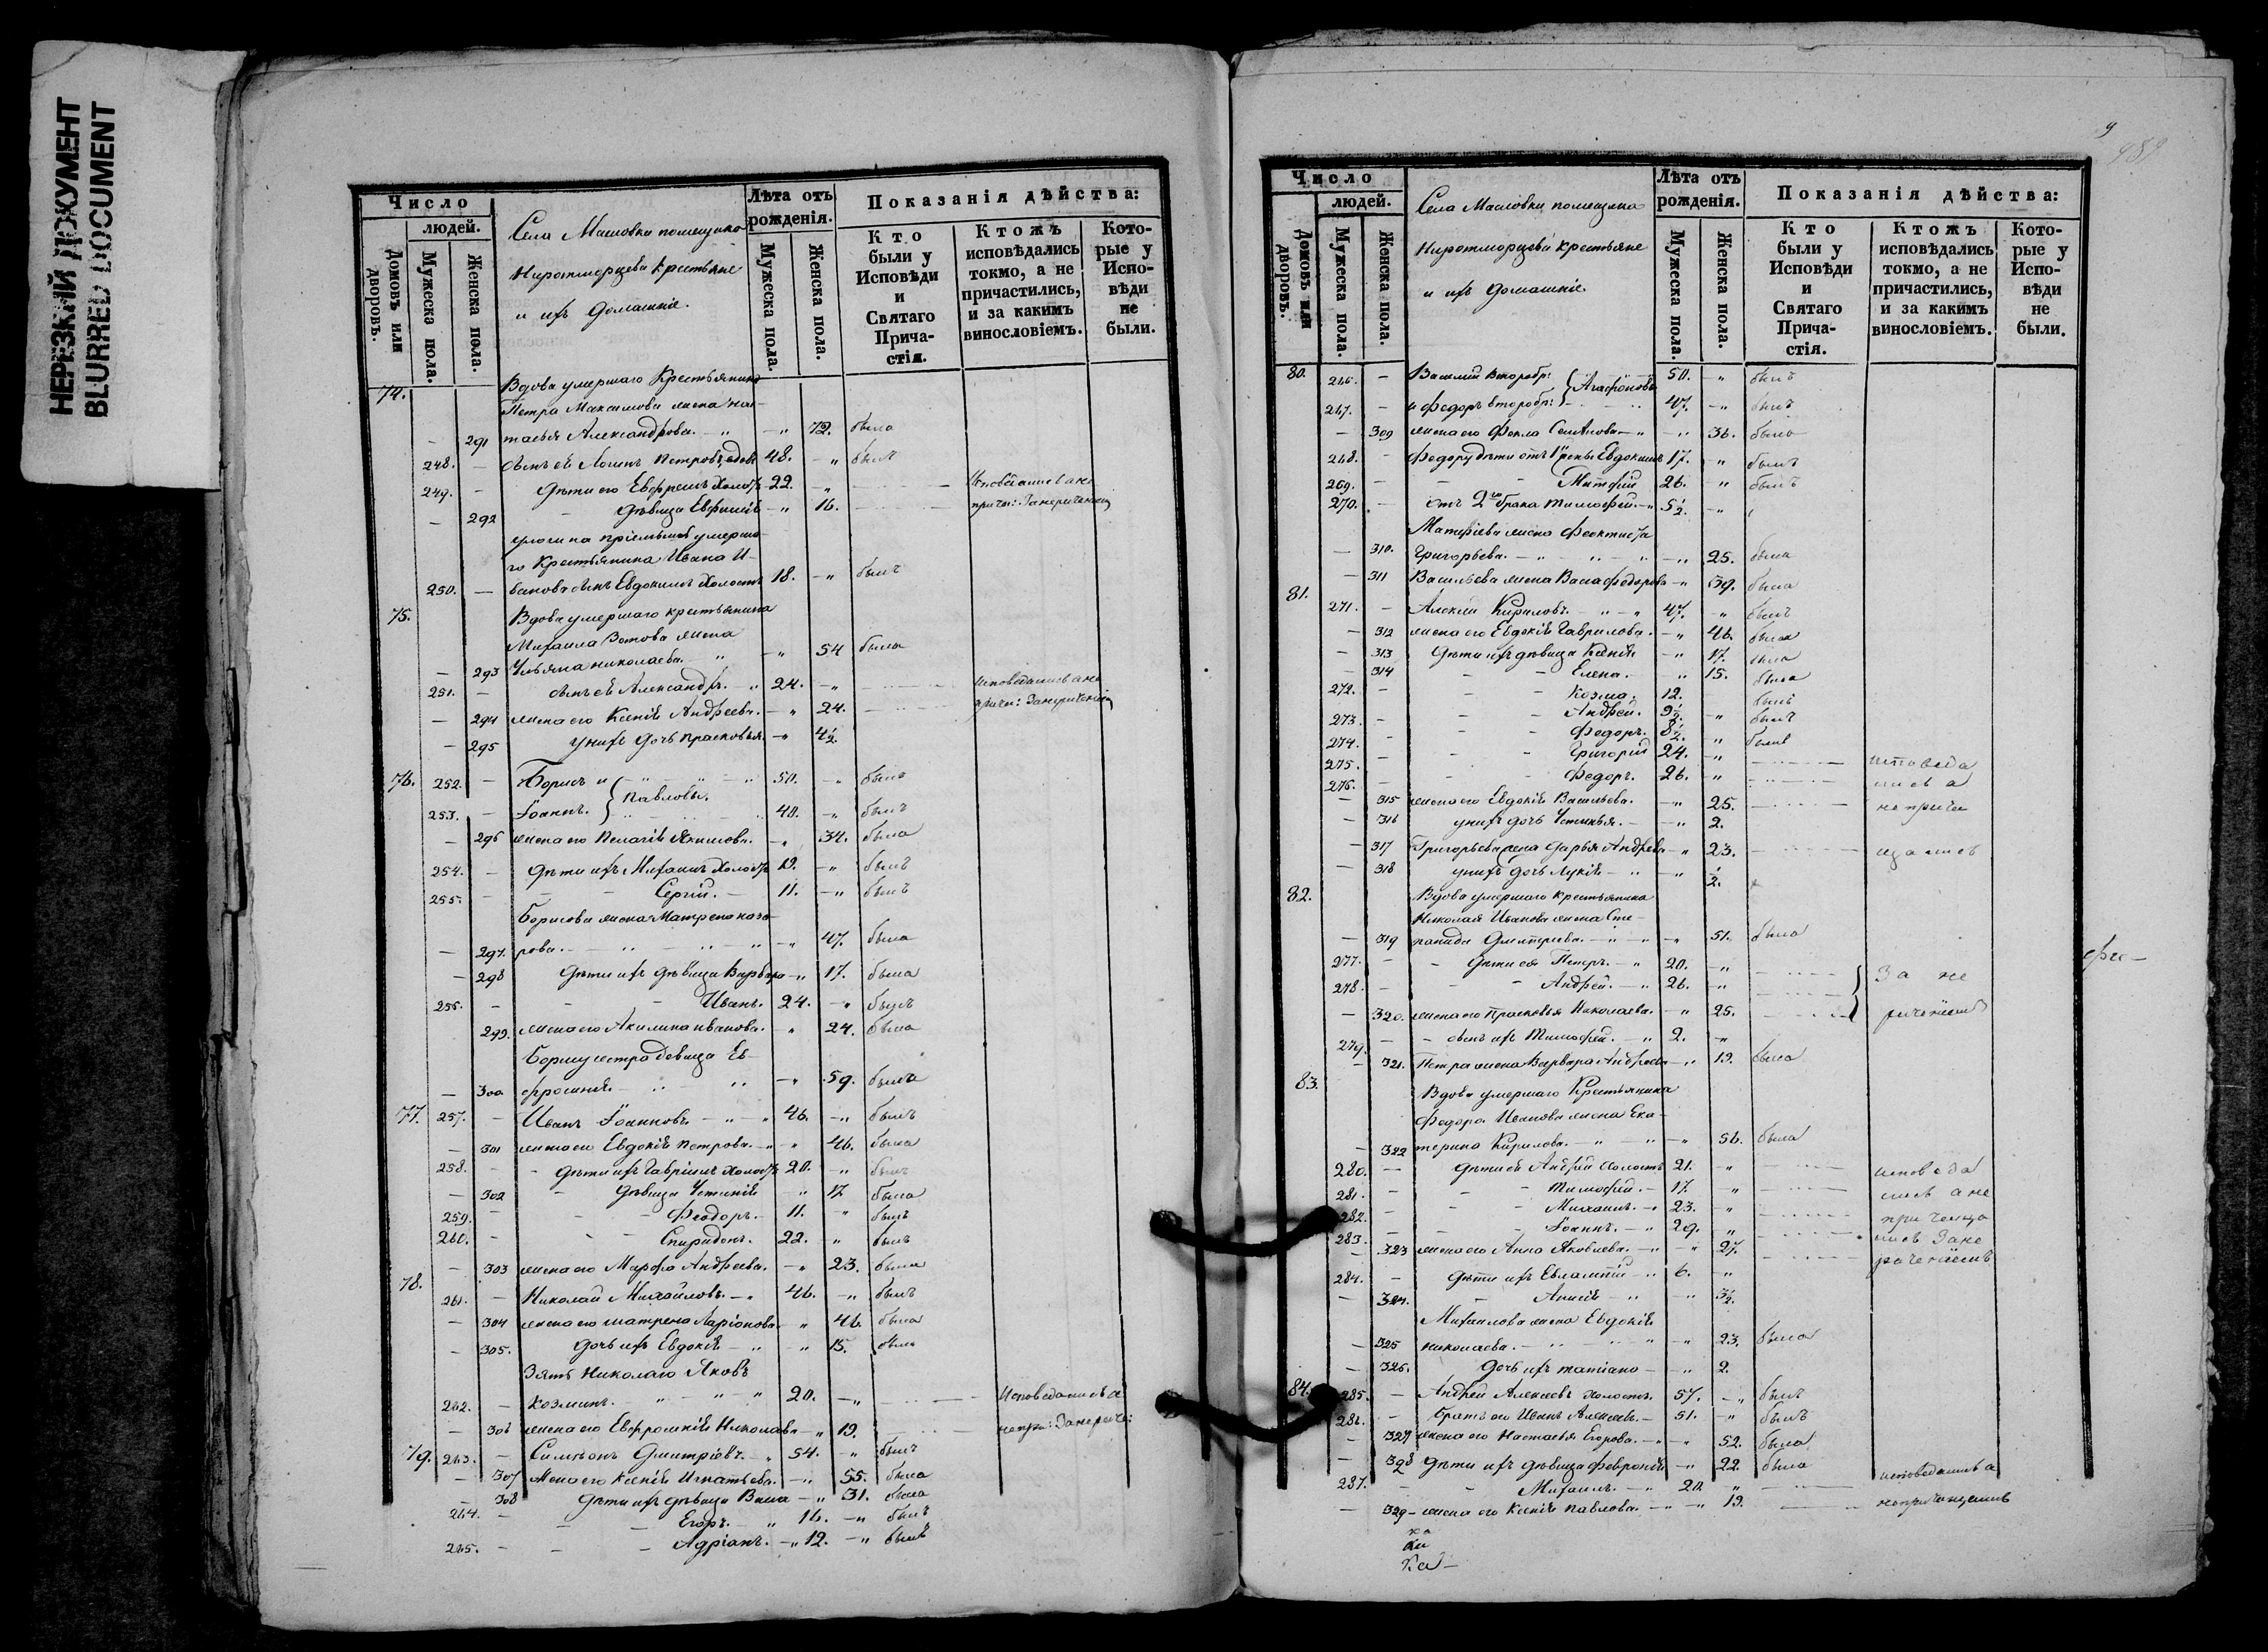 НЕРЕЗКИЙ ДОКУМЕНТ
BLURRED DOCUMENT
Число
людей.
Домовъ или дворовъ.
Мужеска пола.
Женска пола.
Села Масловки помещика
крестьяне
и ихъ домашніе.
Лѣта отъ рожденія.
Мужеска пола.
Женска пола.
Показанія дѣйства:
Кто были у Исповѣди и Святаго Прича-стія.
Ктожъ исповѣдались токмо, а не причастились, и за какимъ винословіемъ.
Кото-рые у Испо-вѣди не были.
74. Вдова умершаго Крестьянина
Петра Максимова жена Нас-
— 291 тасья Александрова. — 72. была
248. — сынъ ея Логинъ Петровъ вдовъ 48. — былъ
249. — Дѣти его Ефремъ холостъ 22. —
— 292 дѣвица Евфимія — 16.
умерша-
го Крестьянина Ивана И-
250. — ванова сынъ Евдокимъ Холостъ 18. — былъ
75. Вдова умершаго крестьянина
Михаила Зотова жена
— 293 Ульяна Николаева. — 54 была
251. — сынъ ея Александръ. — 24. — исповѣдались а не
— 294 жена его Ксенія Андреева. — 24.
— 295 у нихъ дочь Прасковья. — 4½
76. 252. — Борисъ и 50. — былъ
253. — Іоаннъ. } Павловы. 40. — былъ
— 296 жена его Пелагія Якимова. — 34. была
254. — Дѣти ихъ Михаилъ холостъ 19. — былъ
255. — Сергій. — 11. — былъ
Борисова жена Матрена Наза-
— 297. рова. — 47. была
— 298 Дѣти ихъ дѣвица Варвара — 17. была
256. — Иванъ. 24. — былъ
299. жена его Акилина Иванова. 24. была
Борису сестра девица Ев-
— 300 фросинія — 59. была
77. 257. — Иванъ Іоанновъ — 46. — былъ
— 301 жена его Евдокія Петрова. — 46. была
258. — Дѣти ихъ Гавріилъ холостъ 20. — былъ
— 302 — дѣвица Устинія — 17 была
259. — Феодоръ. — 11. былъ
260. — Спиридонъ. 22. былъ
— 303 жена его Марфа Андреева. — 23. была
78. 261. — Николай Михайловъ. — 46. — былъ
— 304 жена его Матрена Ларіонова — 46 была
— 305. дочь ихъ Евдокія — 15. была
Зять Николаю Яковъ
262. — Козминъ. 20. — Исповедались а
— 306 жена его Евфросинія Николаева — 19.
79. 263. — Симеонъ Дмитріевъ. — 54. — былъ
— 307 Жена его Ксенія Игнатьева. — 55. была
— 308 Дѣти ихъ дѣвица Васса — 31. была
264. — Егоръ. — 16. — былъ
265. — Адріанъ. — 12. — былъ
9
489
Число
людей.
Домовъ или дворовъ.
Мужеска пола.
Женска пола.
Села Масловки помещика
крестьяне
и ихъ домашніе.
Лѣта отъ рожденія.
Мужеска пола.
Женска пола.
Показанія дѣйства:
Кто были у Исповѣди и Святаго Прича-стія.
Ктожъ исповѣдались токмо, а не причастились, и за какимъ винословіемъ.
Кото-рые у Испо-вѣди не были.
80. 266. — Василій второбр: } Агафоновы 50. — былъ
267. — и Федоръ второбр: 47. — былъ
— 309 жена его Фекла — 36. была
268. — Федору дѣти отъ Евдокимъ 17. — былъ
269. — Матфій 26. былъ
270. — отъ 2го брака Тимофей. — 5½. —
Матфіева жена Феоктиста
— 310. Григорьева. — 25. была
— 311 Васильева жена Васса Федорова — 39. была
81. 271. — Алексій Кириловъ. — 47. былъ
— 312 жена его Евдокія Гаврилова. — 46. была
— 313 Дѣти ихъ дѣвица Ксенія — 17. была
— 314 — Елена. — 15. была
272. — Козма. 12. былъ
273. — Андрей. 9½. былъ
274. — Федоръ. 8½. былъ
275. — Григорій 24. — исповеда
276. — Федоръ. 26. — лись а
— 315 жена его Евдокія Васильева. — 25. не прича
— 316 у нихъ дочь Устинья. — 2.
— 317 Григорьева жена Дарья Андреева — 23. щались
— 318 у нихъ дочь Лукія — ½.
82. Вдова умершаго крестьянина
Николая Иванова жена Сте-
— 319 панида Дмитриева. — 51. была
277. — Дѣти ея Петръ. — 20. — За не
278. — Андрей. — 26. —
— 320. жена его Прасковья Николаева. — 25. раченіемъ
279. — сынъ ихъ Тимофей. — 2. —
— 321. Петра жена Варвара Андреева — 19. была
83. Вдова умершаго Крестьянина
Федора Иванова жена Ека-
— 322 терина Кирилова. — 56. была
280. — Дѣти ея Андрей Холостъ 21. — исповѣда
281. — Тимофей. — 17. лись а не
282. — Михаилъ. — 23. причаща
283. — Іоаннъ. — 29. лись За не
— 323 жена его Анна Яковлева. — 27. раченіемъ
284. — Дѣти ихъ Евлампій — 6.
— 324. — Анисія — 3½.
Михаилова жена Евдокія
— 325 Николаева. — 23. была
— 326. дочь ихъ Татіана — 2.
84. 285. — Андрей Алексеевъ холостъ. 57. — былъ
286. — братъ его Иванъ Алексеевъ. — 51. — былъ
— 327 жена его Настасья Егорова. — 52. была
— 328 Дѣти ихъ дѣвица Февронія — 22. была
287. — Михаилъ. — 20. исповѣдались а
— 329 — жена его Ксенія Павлова. — 19. не причащались